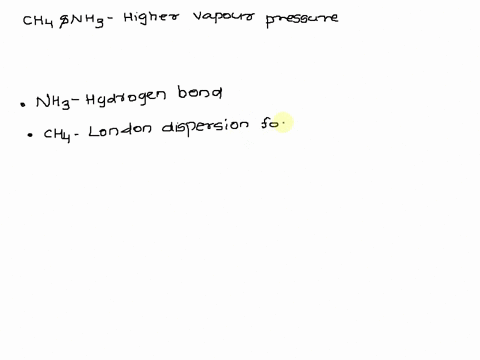 CH4 & NH3 - Higher vapour pressure
• NH3 - Hydrogen bond
• CH4 - London dispersion fo